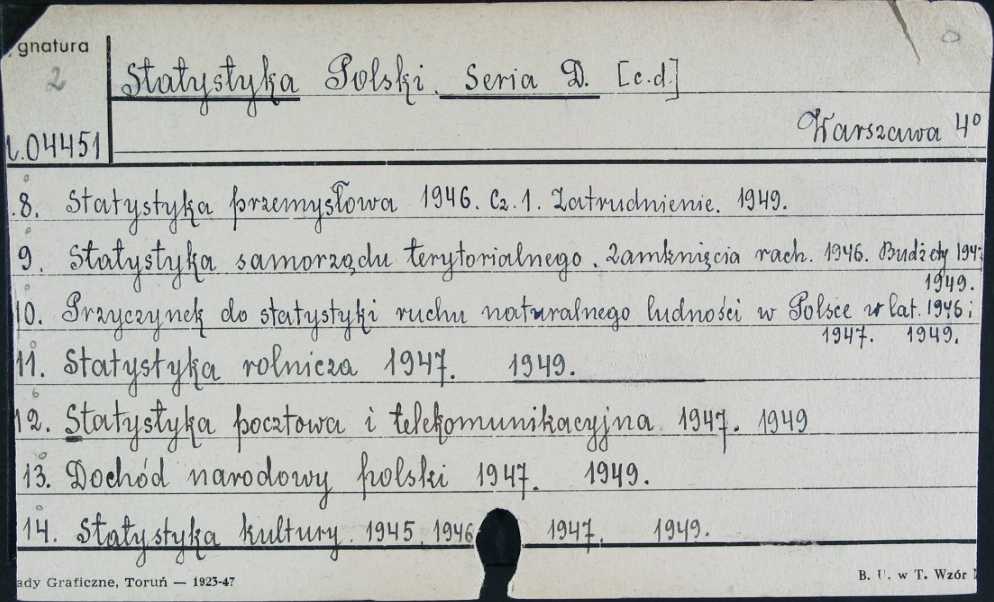 gnatura
2
Statystyka Polski. Seria D. [c.d.]
Warszawa 4°
04451
8. Statystyka przemysłowa 1946. Cz. 1. Zatrudnienie. 1949.
9. Statystyka samorządu terytorialnego. Zamknięcia rach. 1946. Budżety 1947
1949.
10. Przyczynek do statystyki ruchu naturalnego ludności w Polsce w lat. 1946 i
1947. 1949.
11. Statystyka rolnicza 1947. 1949.
12. Statystyka pocztowa i telekomunikacyjna 1947. 1949
13. Dochód narodowy polski 1947. 1949.
14. Statystyka kultury. 1945, 1946 1947. 1949.
ady Graficzne, Toruń — 1923-47
B. U. w T. Wzór